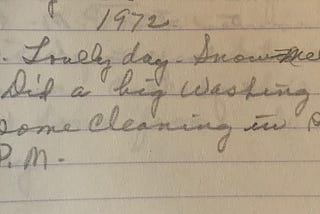 1972
. Lovely day. Snow
Did a big Washing
some cleaning in
P.M.